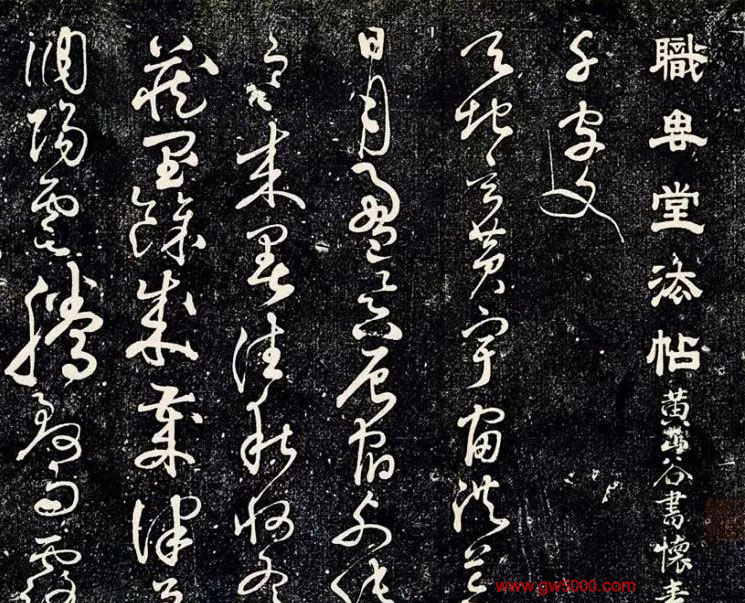 職思堂法帖 黄山谷書懷素
千字文
天地玄黄宇宙洪荒
日月盈昃辰宿列張
寒来暑往秋收冬
藏閏餘成歲律吕
調陽雲騰致雨露
www.gw5000.com